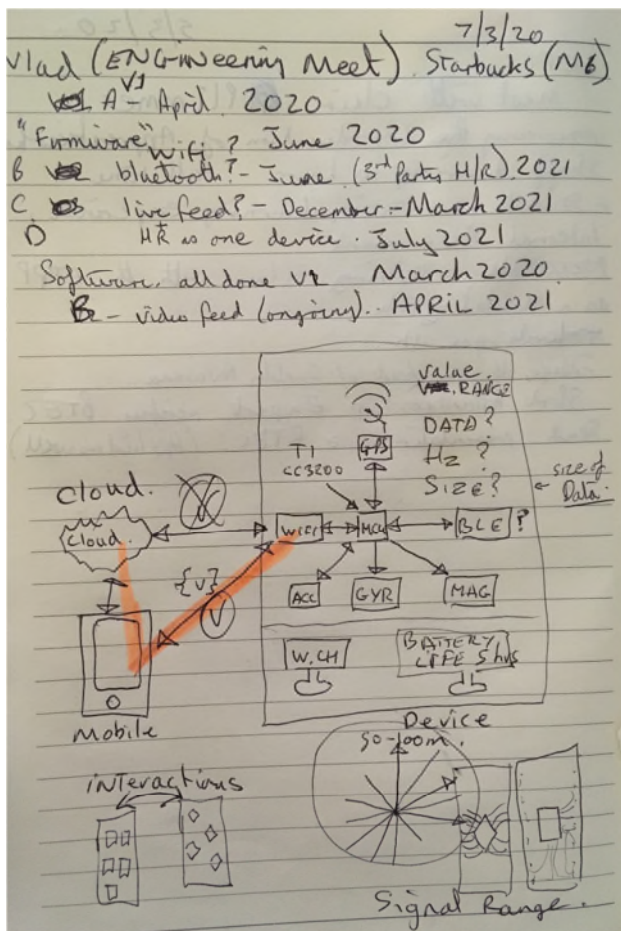 7/3/20
Vlad (ENGineering Meet). Starbucks (M6)
A V1 - April. 2020
"Firmware" Wifi? June 2020
B bluetooth? - June (3rd Party H/R) 2021
C. live feed? - December - March 2021
D HR as one device. July 2021
Software all done V1 March 2020
B - video feed (ongoing).. APRIL 2021
value.
RANGE
DATA?
HZ?
SIZE?
size of
Data.
GPS
TI
CC3200
Cloud.
V
Cloud.
WIFI
MCU
BLE?
{V}
V
ACC
GYR
MAG
W.CH
BATTERY
LIFE 5 hrs
Mobile
Device
50-100m.
interactions
Signal Range.